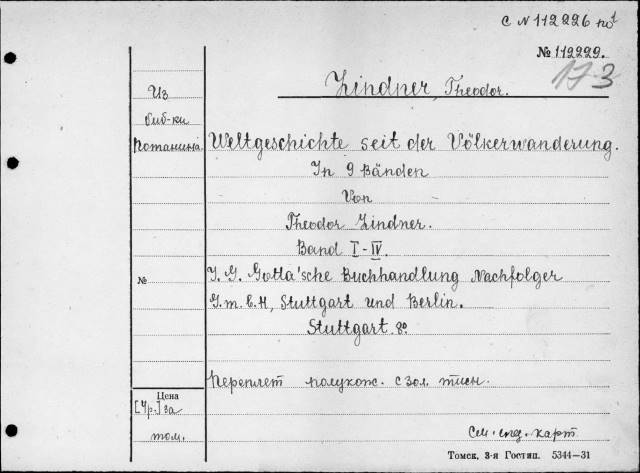 с № 112226 по 1
№ 112229.
173
Lindner, Theodor.
Из
биб-ки
Потанина.
Weltgeschichte seit der Völkerwanderung.
In 9 Bänden
Von
Theodor Lindner.
Band I-IV.
№
J. G. Gotta'sche Buchhandlung Nachfolger
G. m. b. H, Stuttgart und Berlin.
Stuttgart. 8°
Переплет полукож. с зол. тисн.
Цена
[4р.] за
том.
См. след. карт.
Томск, 3-я Гостип. 5344—31